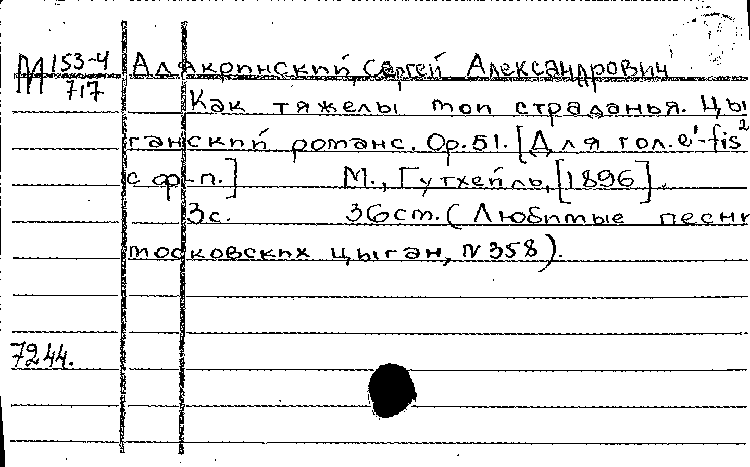 М 153-4
717
Алякринский, Сергей Александрович
Как тяжелы мои страданья. Цы
ганский романс. Op.51. [Для гол. e¹-fis²
с ф-п.] М., Гутхейль, [1896].
3с. 36см. (Любимые песни
московских цыган, N 358).
7244.